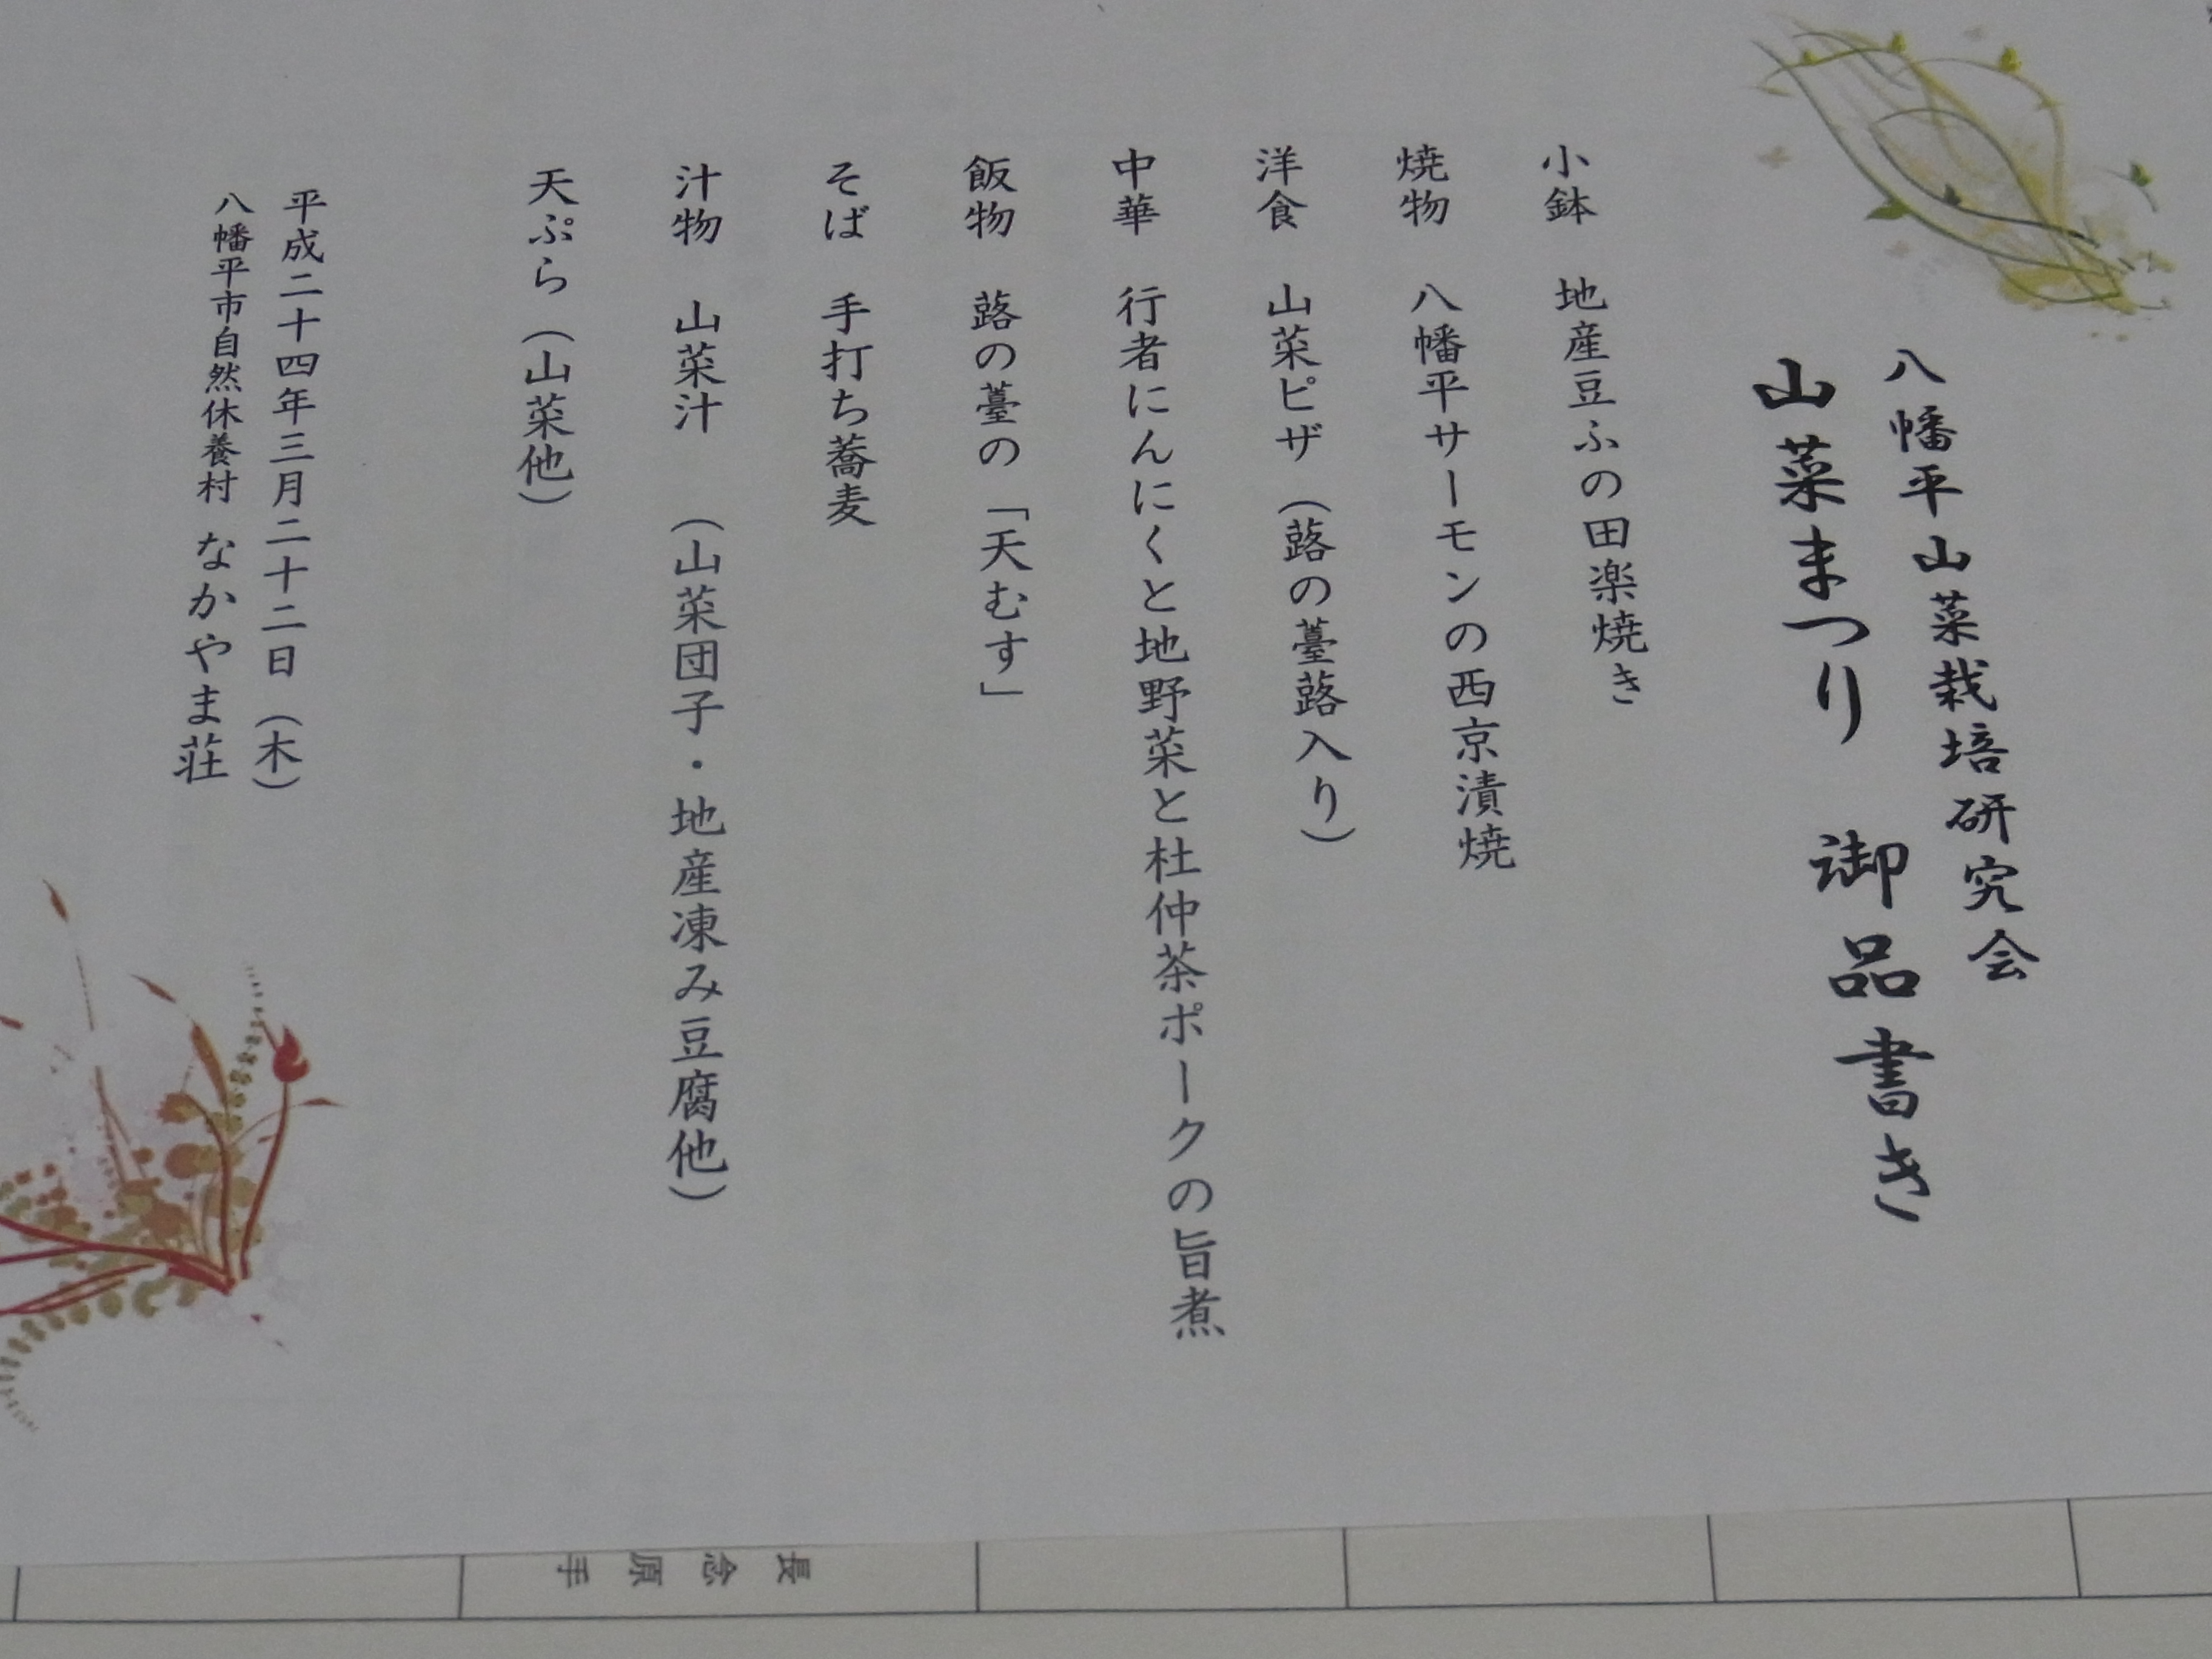 八幡平山菜栽培研究会
山菜まつり　御品書き
小鉢　地産豆ふの田楽焼き
焼物　八幡平サーモンの西京漬焼
洋食　山菜ピザ（蕗の薹蕗入り）
中華　行者にんにくと地野菜と杜仲茶ポークの旨煮
飯物　蕗の薹の「天むす」
そば　手打ち蕎麦
汁物　山菜汁　（山菜団子・地産凍み豆腐他）
天ぷら（山菜他）
平成二十四年三月二十二日（木）
八幡平市自然休養村　なかやま荘